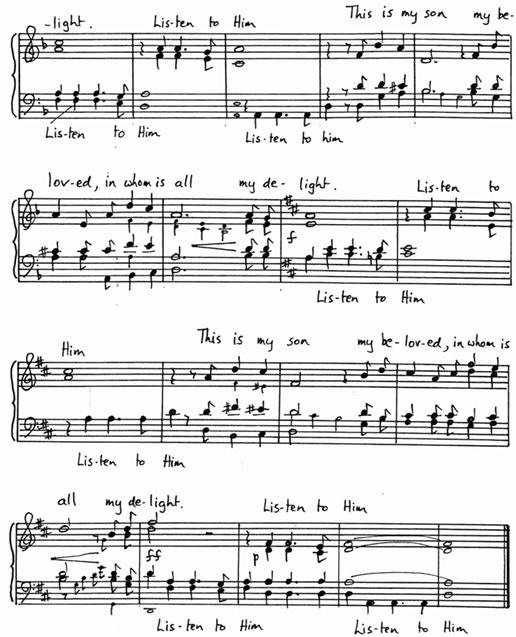 This is my son my be-
-light. Lis-ten to Him
Lis-ten to Him Lis-ten to him
lov-ed, in whom is all my de-light. Lis-ten to
f
Lis-ten to Him
Him This is my son my be-lov-ed, in whom is
p #p
Lis-ten to Him
all my de-light. Lis-ten to Him
ff p
Lis-ten to Him Lis-ten to Him